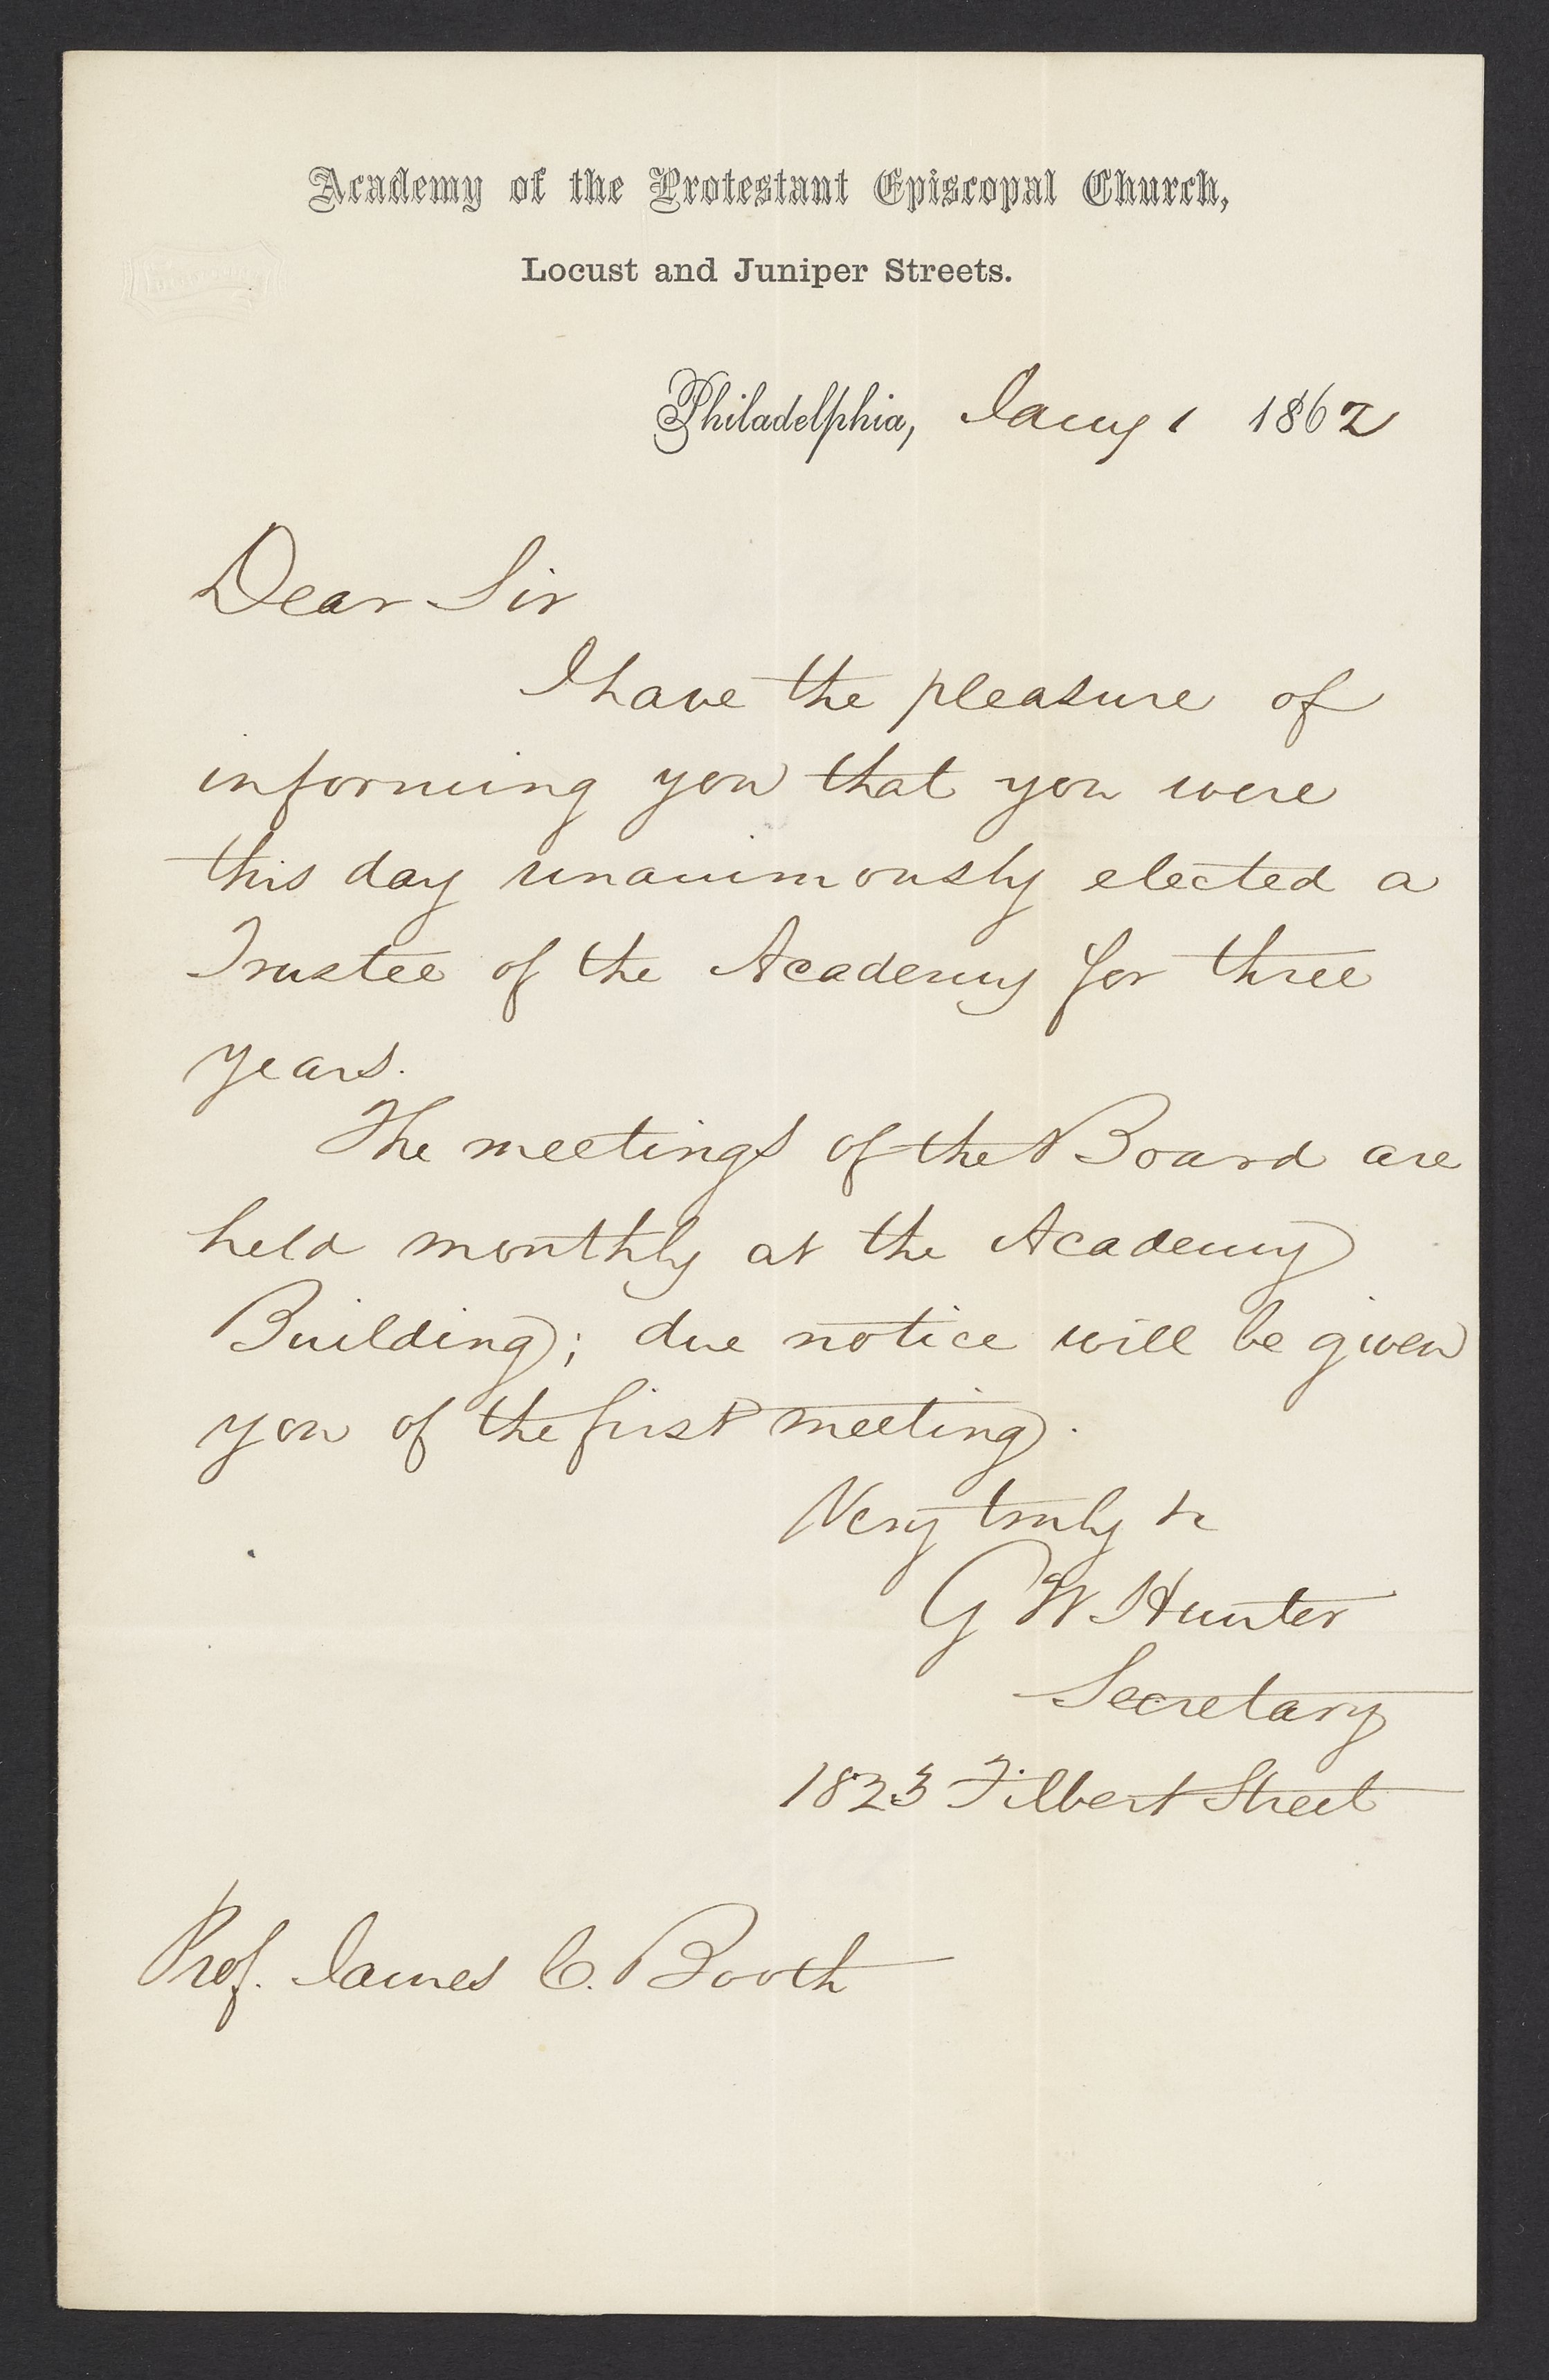 Academy of the Protestant Episcopal Church,
Locust and Juniper Streets.
Philadelphia, Jany 1 1862
Dear Sir
I have the pleasure of
informing you that you were
this day unanimously elected a
Trustee of the Academy for three
years.
The meetings of the Board are
held monthly at the Academy
Building; due notice will be given
you of the first meeting.
Very truly &c
G W Hunter
Secretary
1823 Filbert Street
Prof. James C. Booth